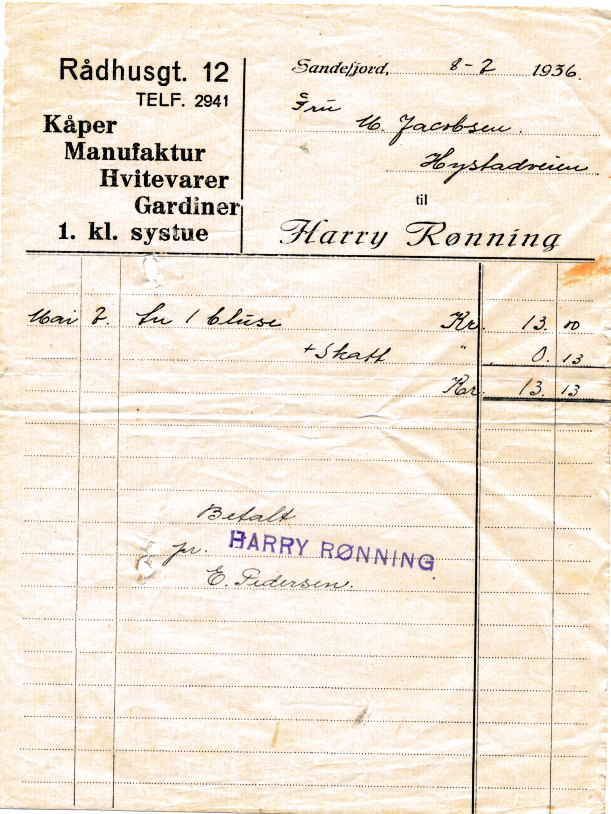 Rådhusgt. 12
TELF. 2941
Kåper
Manufaktur
Hvitevarer
Gardiner
1. kl. systue
Sandefjord, 8-7 1936.
Fru
M. Jacobsen.
Hystadveien
til
Harry Rønning
Mai 7. En 1 bluse Kr. 13. 00
+ Skatt " 0. 13
Kr. 13. 13
Betalt
pr. HARRY RØNNING
E. Pedersen.